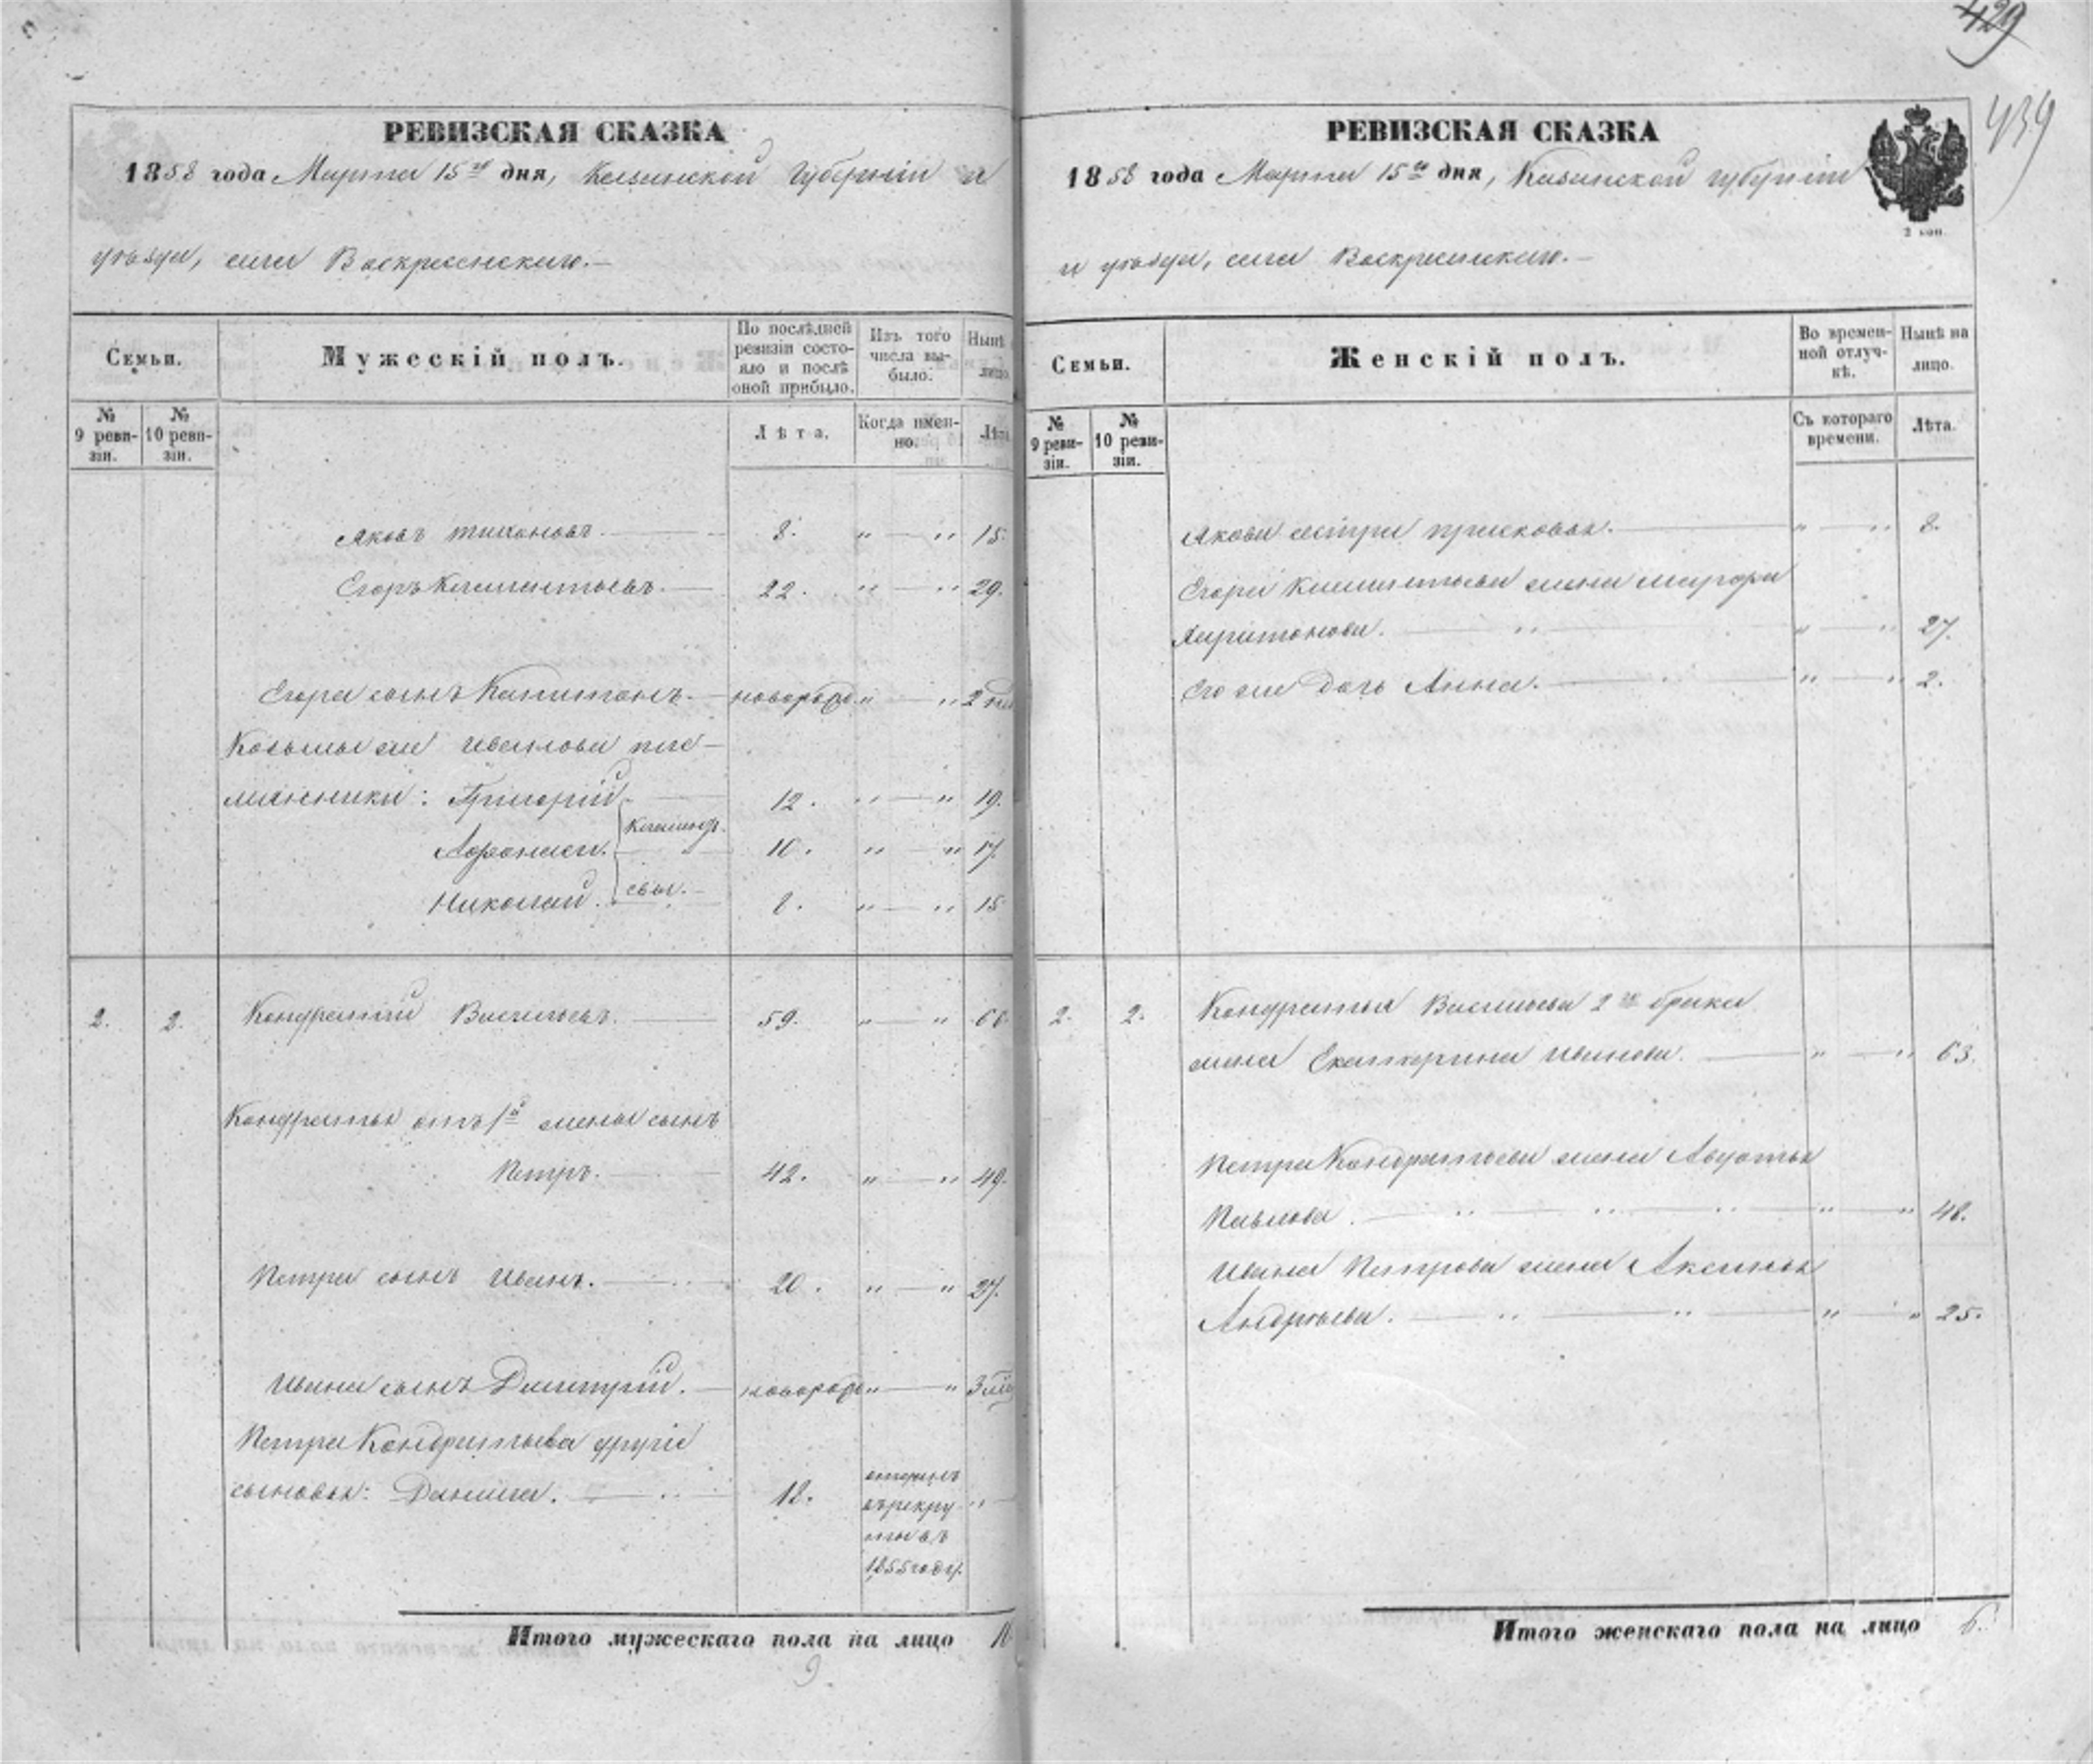 429
439
РЕВИЗСКАЯ СКАЗКА
1858 года Марта 15го дня, Казанской Губерніи и
уѣзда, села Воскресенскаго.—
Семьи.
Мужескій полъ.
По послѣдней ревизіи состояло и послѣ оной прибыло.
Изъ того числа выбыло.
Нынѣ на лицо.
№ 9 ревизіи.
№ 10 ревизіи.
Лѣта.
Когда именно.
Лѣта
Яковъ Тихоновъ. 8. " — " 15.
Егоръ Климентьевъ. 22. " — " 29.
Егора сынъ Капитонъ. — новорожд. " — " 2
Козьмы же Иванова пле-
мянники: Григорій 12. " — " 19.
Афанасей. 10. " — " 17.
Николай. 8. " — " 15
2. 2. Кондратій Васильевъ. 59. " — " 66
Кондратья отъ 1й жены сынъ
Петръ. 42. " — " 49.
Петра сынъ Иванъ. 20. " — " 27.
Ивана сынъ Дмитрій. — новорожд " — " 3
Петра Кондратьева другіе
сыновья: Данила. 18.
отданъ
въ рекру
ты въ
1855 году.
Итого мужескаго пола на лицо
9
РЕВИЗСКАЯ СКАЗКА
1858 года Марта 15го дня, Казанской губерніи
и уѣзда, села Воскресенскаго.—
2 коп.
Семьи.
Женскій полъ.
Во временной отлучкѣ.
Нынѣ на лицо.
№ 9 ревизіи.
№ 10 ревизіи.
Съ котораго времени.
Лѣта.
Якова сестра Прасковья. " — " 8.
Егора Климентьева жена
Харитонова. " — " 27.
Его же дочь Анна. " — " 2.
2. 2. Кондратья Васильева 2го брака
жена Екатерина Иванова. " — " 63.
Петра Кондратьева жена Авдотья
Павлова. " — " 48.
Ивана Петрова жена Аксинья
Андреева. " — " 25.
Итого женскаго пола на лицо 6.